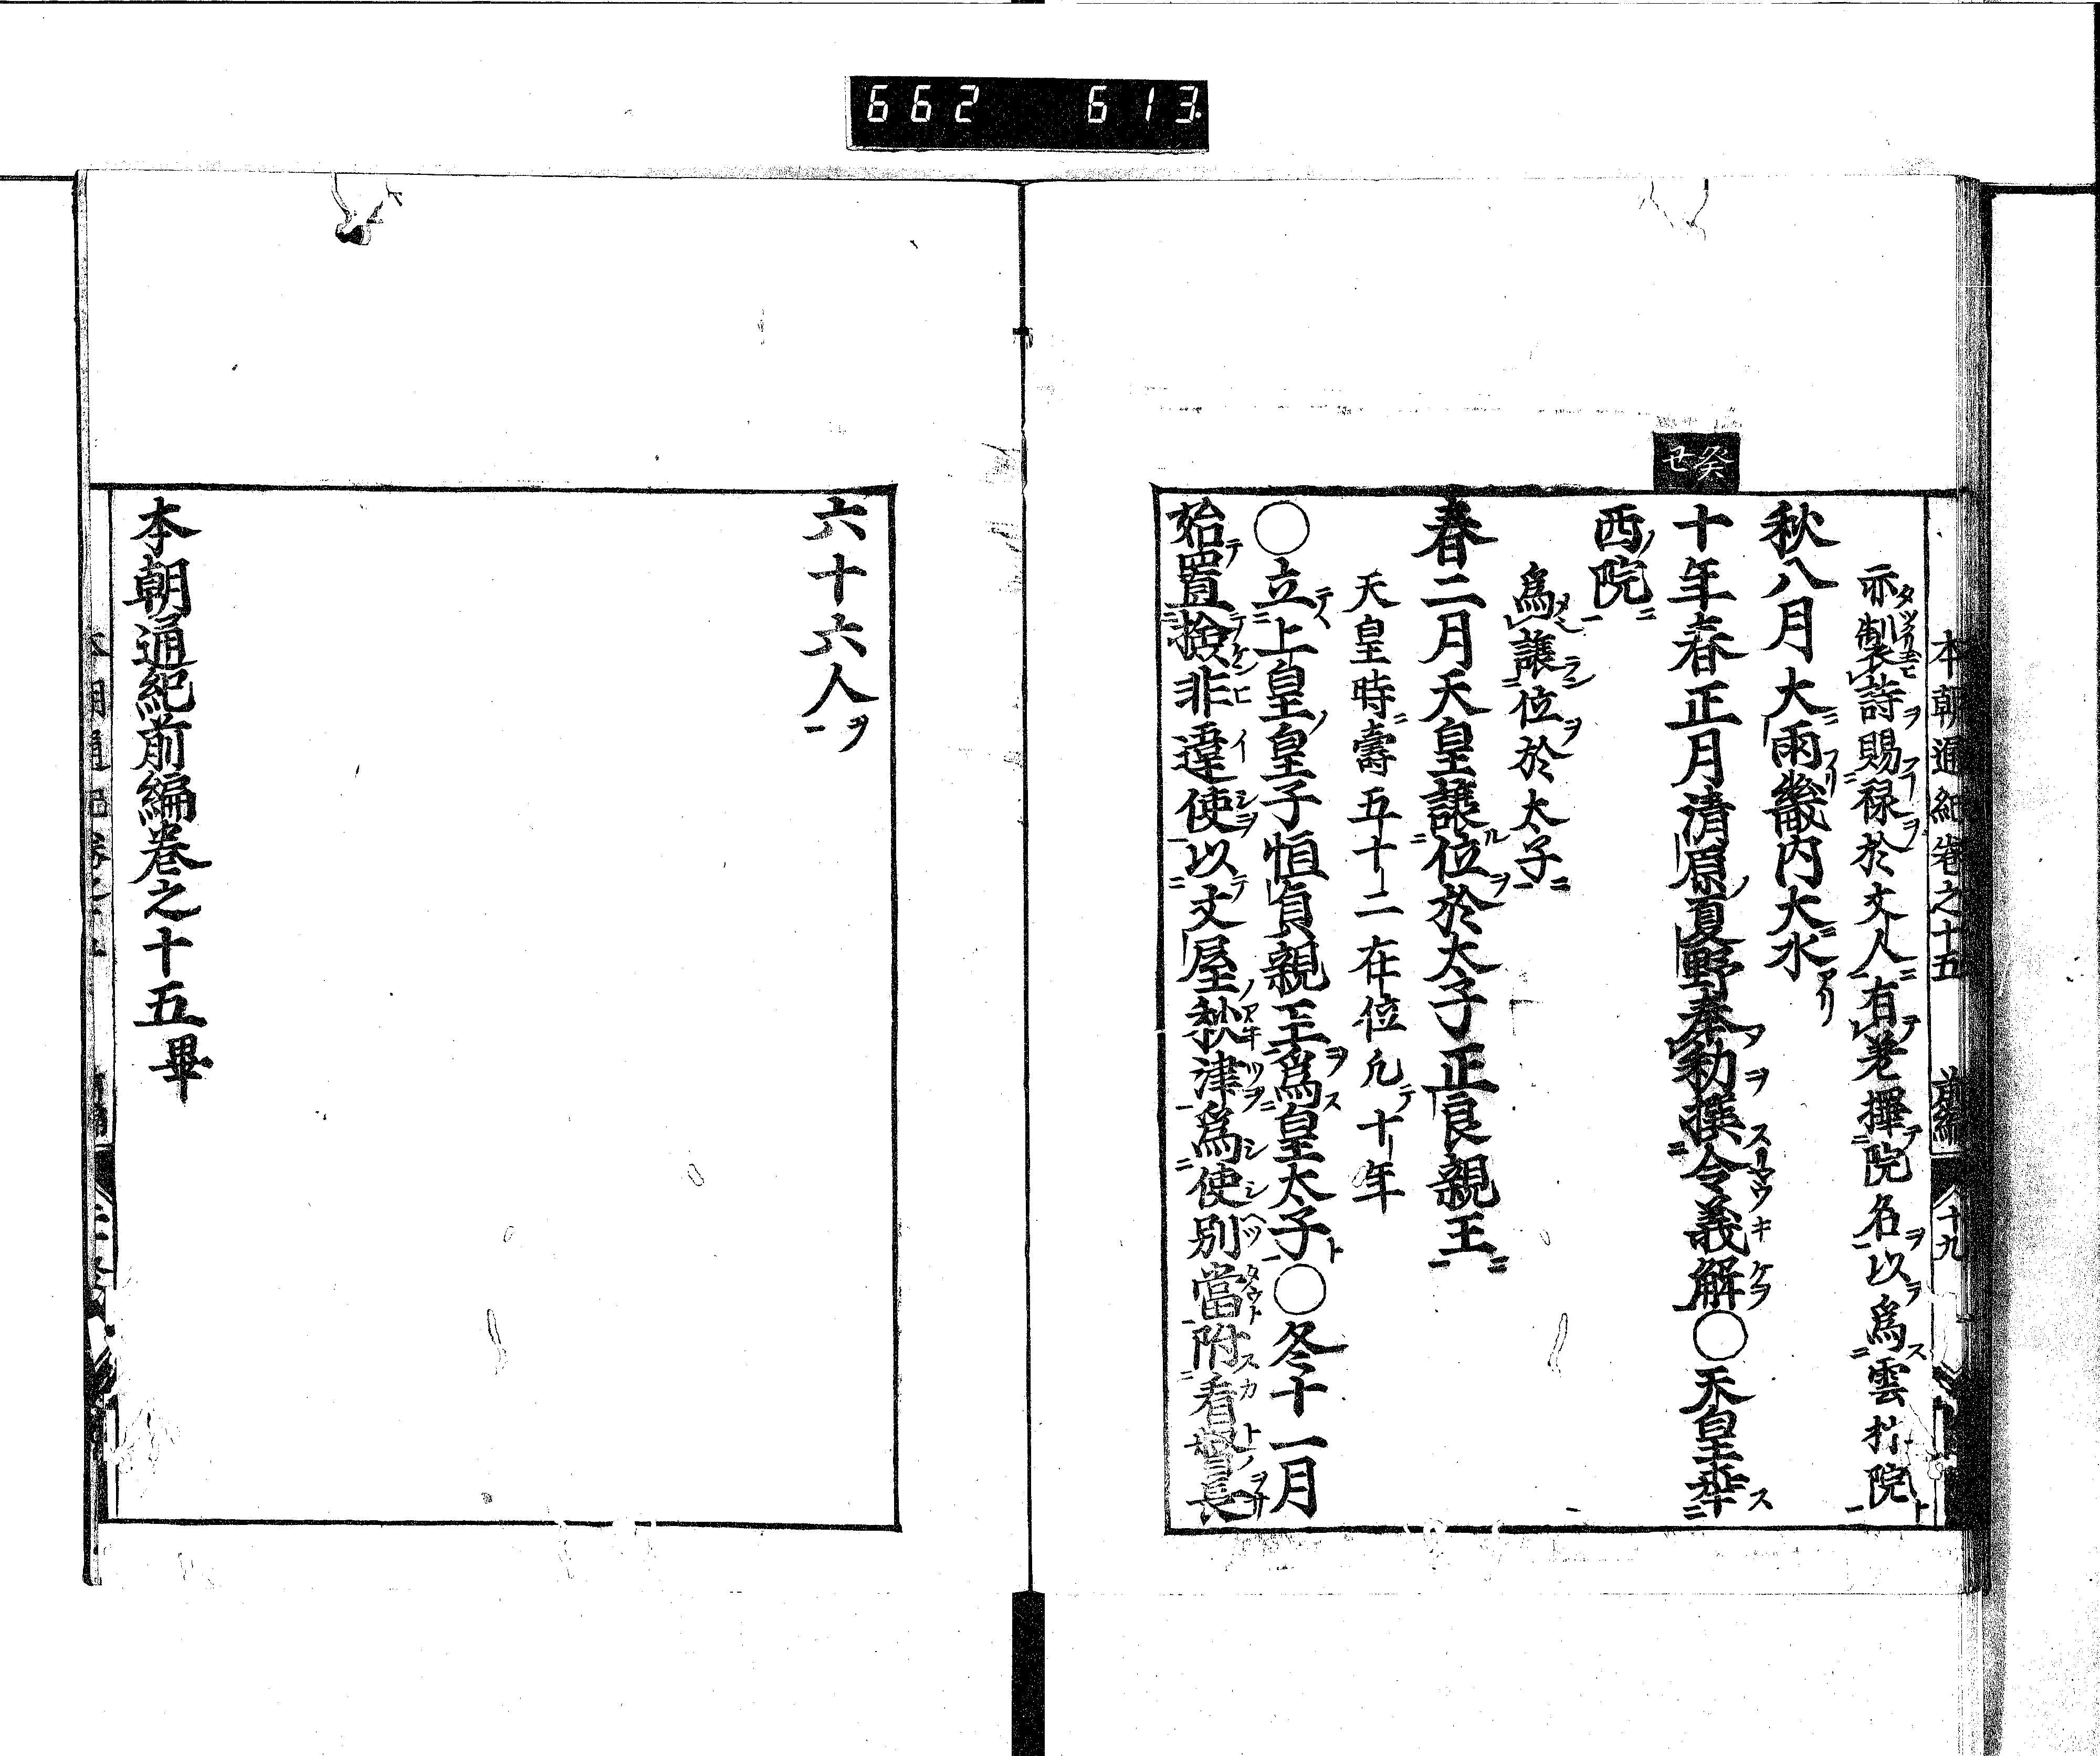 662 613
本朝通紀卷之十五 前編 十九
亦製詩賜禄於文人有老擇院名以為雲林院
秋八月大雨畿内大水
癸丑
十年春正月清原夏野奉勅撰令義解○天皇幸
西院
為讓位於太子
春二月天皇讓位於太子正良親王
天皇時壽五十二在位凢十年
○立上皇皇子恒貞親王為皇太子○冬十一月
始置撿非違使以文屋秋津為使別當附看督長
六十六人
本朝通紀前編卷之十五畢